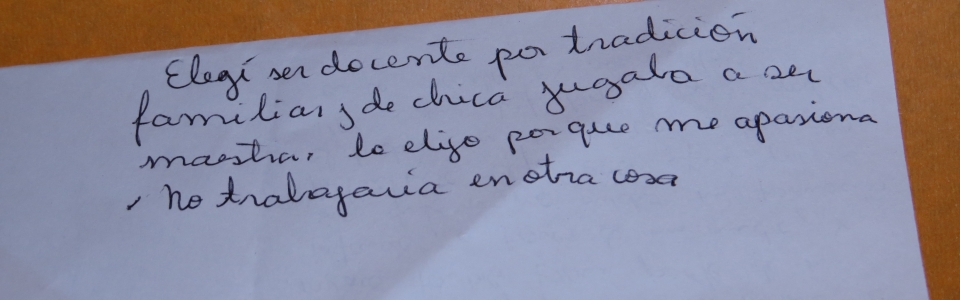 Elegí ser docente por tradición
familiar, de chica jugaba a ser
maestra, lo elijo porque me apasiona
, No trabajaría en otra cosa